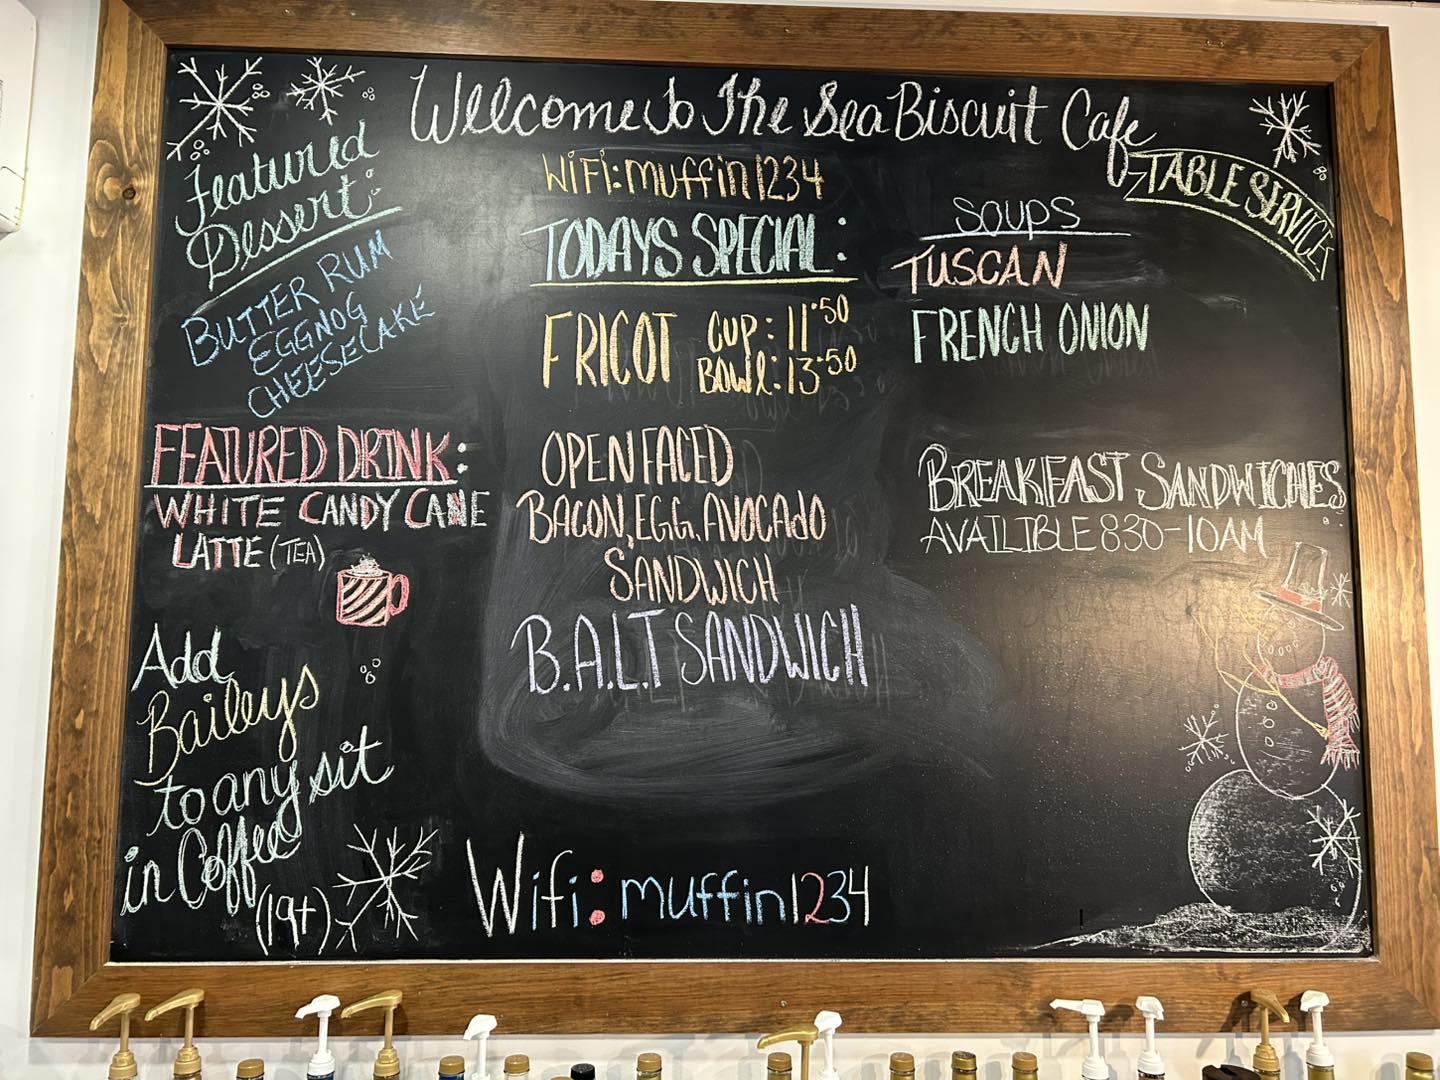 Welcome To The Sea Biscuit Cafe
TABLE SERVICE
Featured
Dessert:
BUTTER RUM
EGGNOG
CHEESECAKE
FEATURED DRINK:
WHITE CANDY CANE
LATTE (TEA)
Add
Baileys
to any sit
in Coffee
(19+)
WiFi: muffin1234
TODAYS SPECIAL:
FRICOT CUP: 11.50
BOWL: 13.50
OPEN FACED
BACON, EGG, AVOCADO
SANDWICH
B.A.L.T SANDWICH
Wifi: muffin1234
SOUPS
TUSCAN
FRENCH ONION
BREAKFAST SANDWICHES
AVAILIBLE 830-10AM